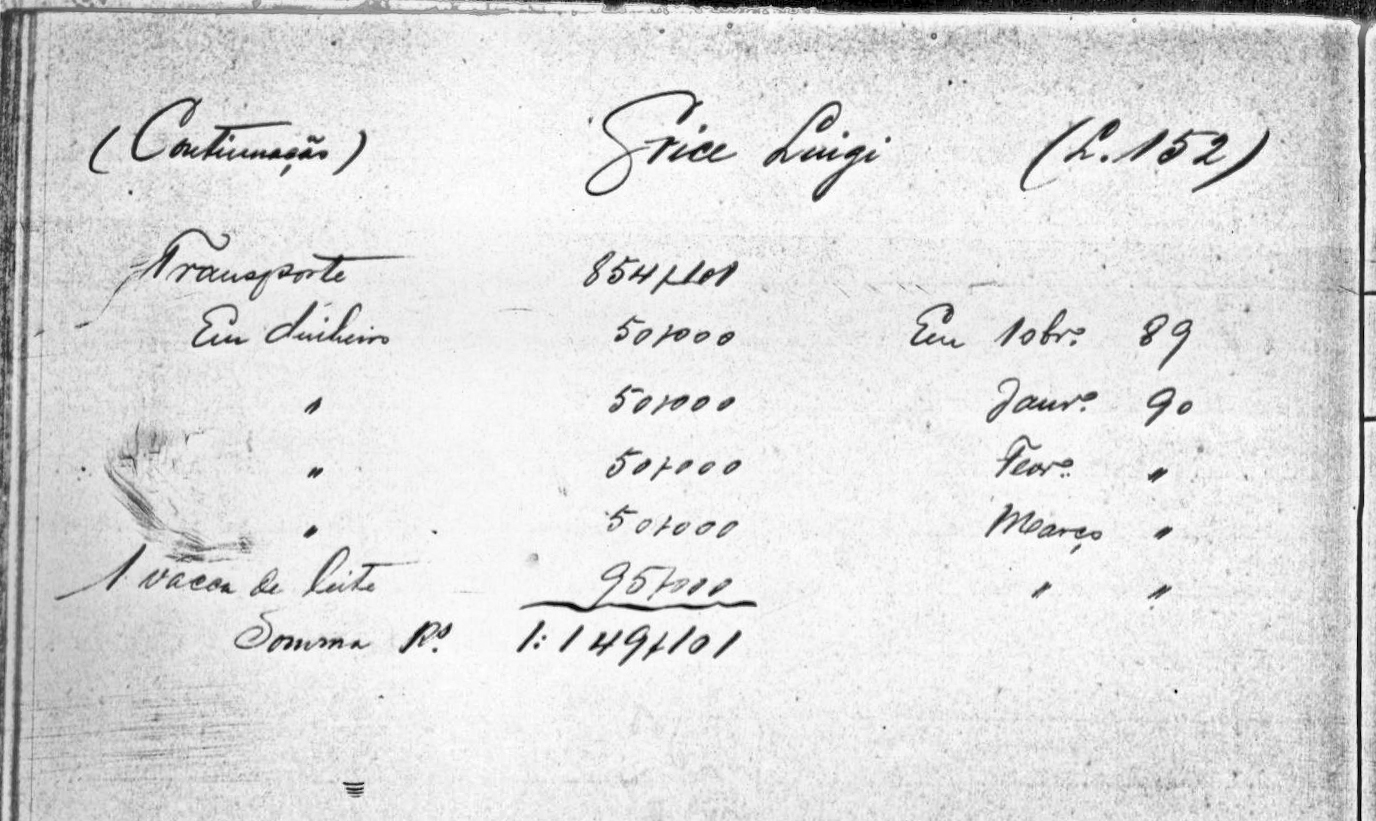 (Continuação) Grice Luigi (L. 152)
Transporte 854$101
Em dinheiro 50$000 Em 10brº. 89
" 50$000 Janrº. 90
" 50$000 Fevrº. "
" 50$000 Março "
1 vacca de leite 95$000 " "
Somma Rs. 1:149$101